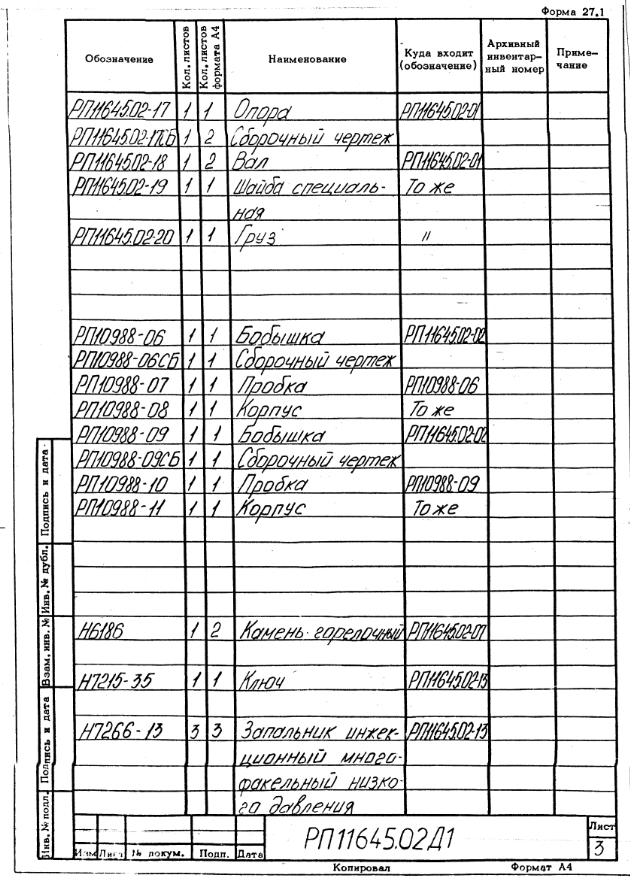 Форма 27.1
Обозначение Кол. листов Кол. листов формата А4 Наименование Куда входит (обозначение) Архивный инвентарный номер Примечание
РП11645.02-17 1 1 Опора РП11645.02-01
РП11645.02-17СБ 1 2 Сборочный чертеж
РП11645.02-18 1 2 Вал РП11645.02-01
РП11645.02-19 1 1 Шайба специаль- То же
ная
РП11645.02-20 1 1 Груз "
РП10988-06 1 1 Бобышка РП11645.02-02
РП10988-06СБ 1 1 Сборочный чертеж
РП10988-07 1 1 Пробка РП10988-06
РП10988-08 1 1 Корпус То же
РП10988-09 1 1 Бобышка РП11645.02-02
РП10988-09СБ 1 1 Сборочный чертеж
РП10988-10 1 1 Пробка РП10988-09
РП10988-11 1 1 Корпус То же
Н6186 1 2 Камень горелочный РП11645.02-07
Н7215-35 1 1 Ключ РП11645.02-13
Н7266-13 3 3 Запальник инжек- РП11645.02-13
ционный много-
факельный низко-
го давления
Подпись и дата
Инв. № дубл.
Взам. инв. №
Подпись и дата
Инв. № подл.
РП11645.02Д1
Лист
3
Изм Лист № докум. Подп. Дата
Копировал Формат А4